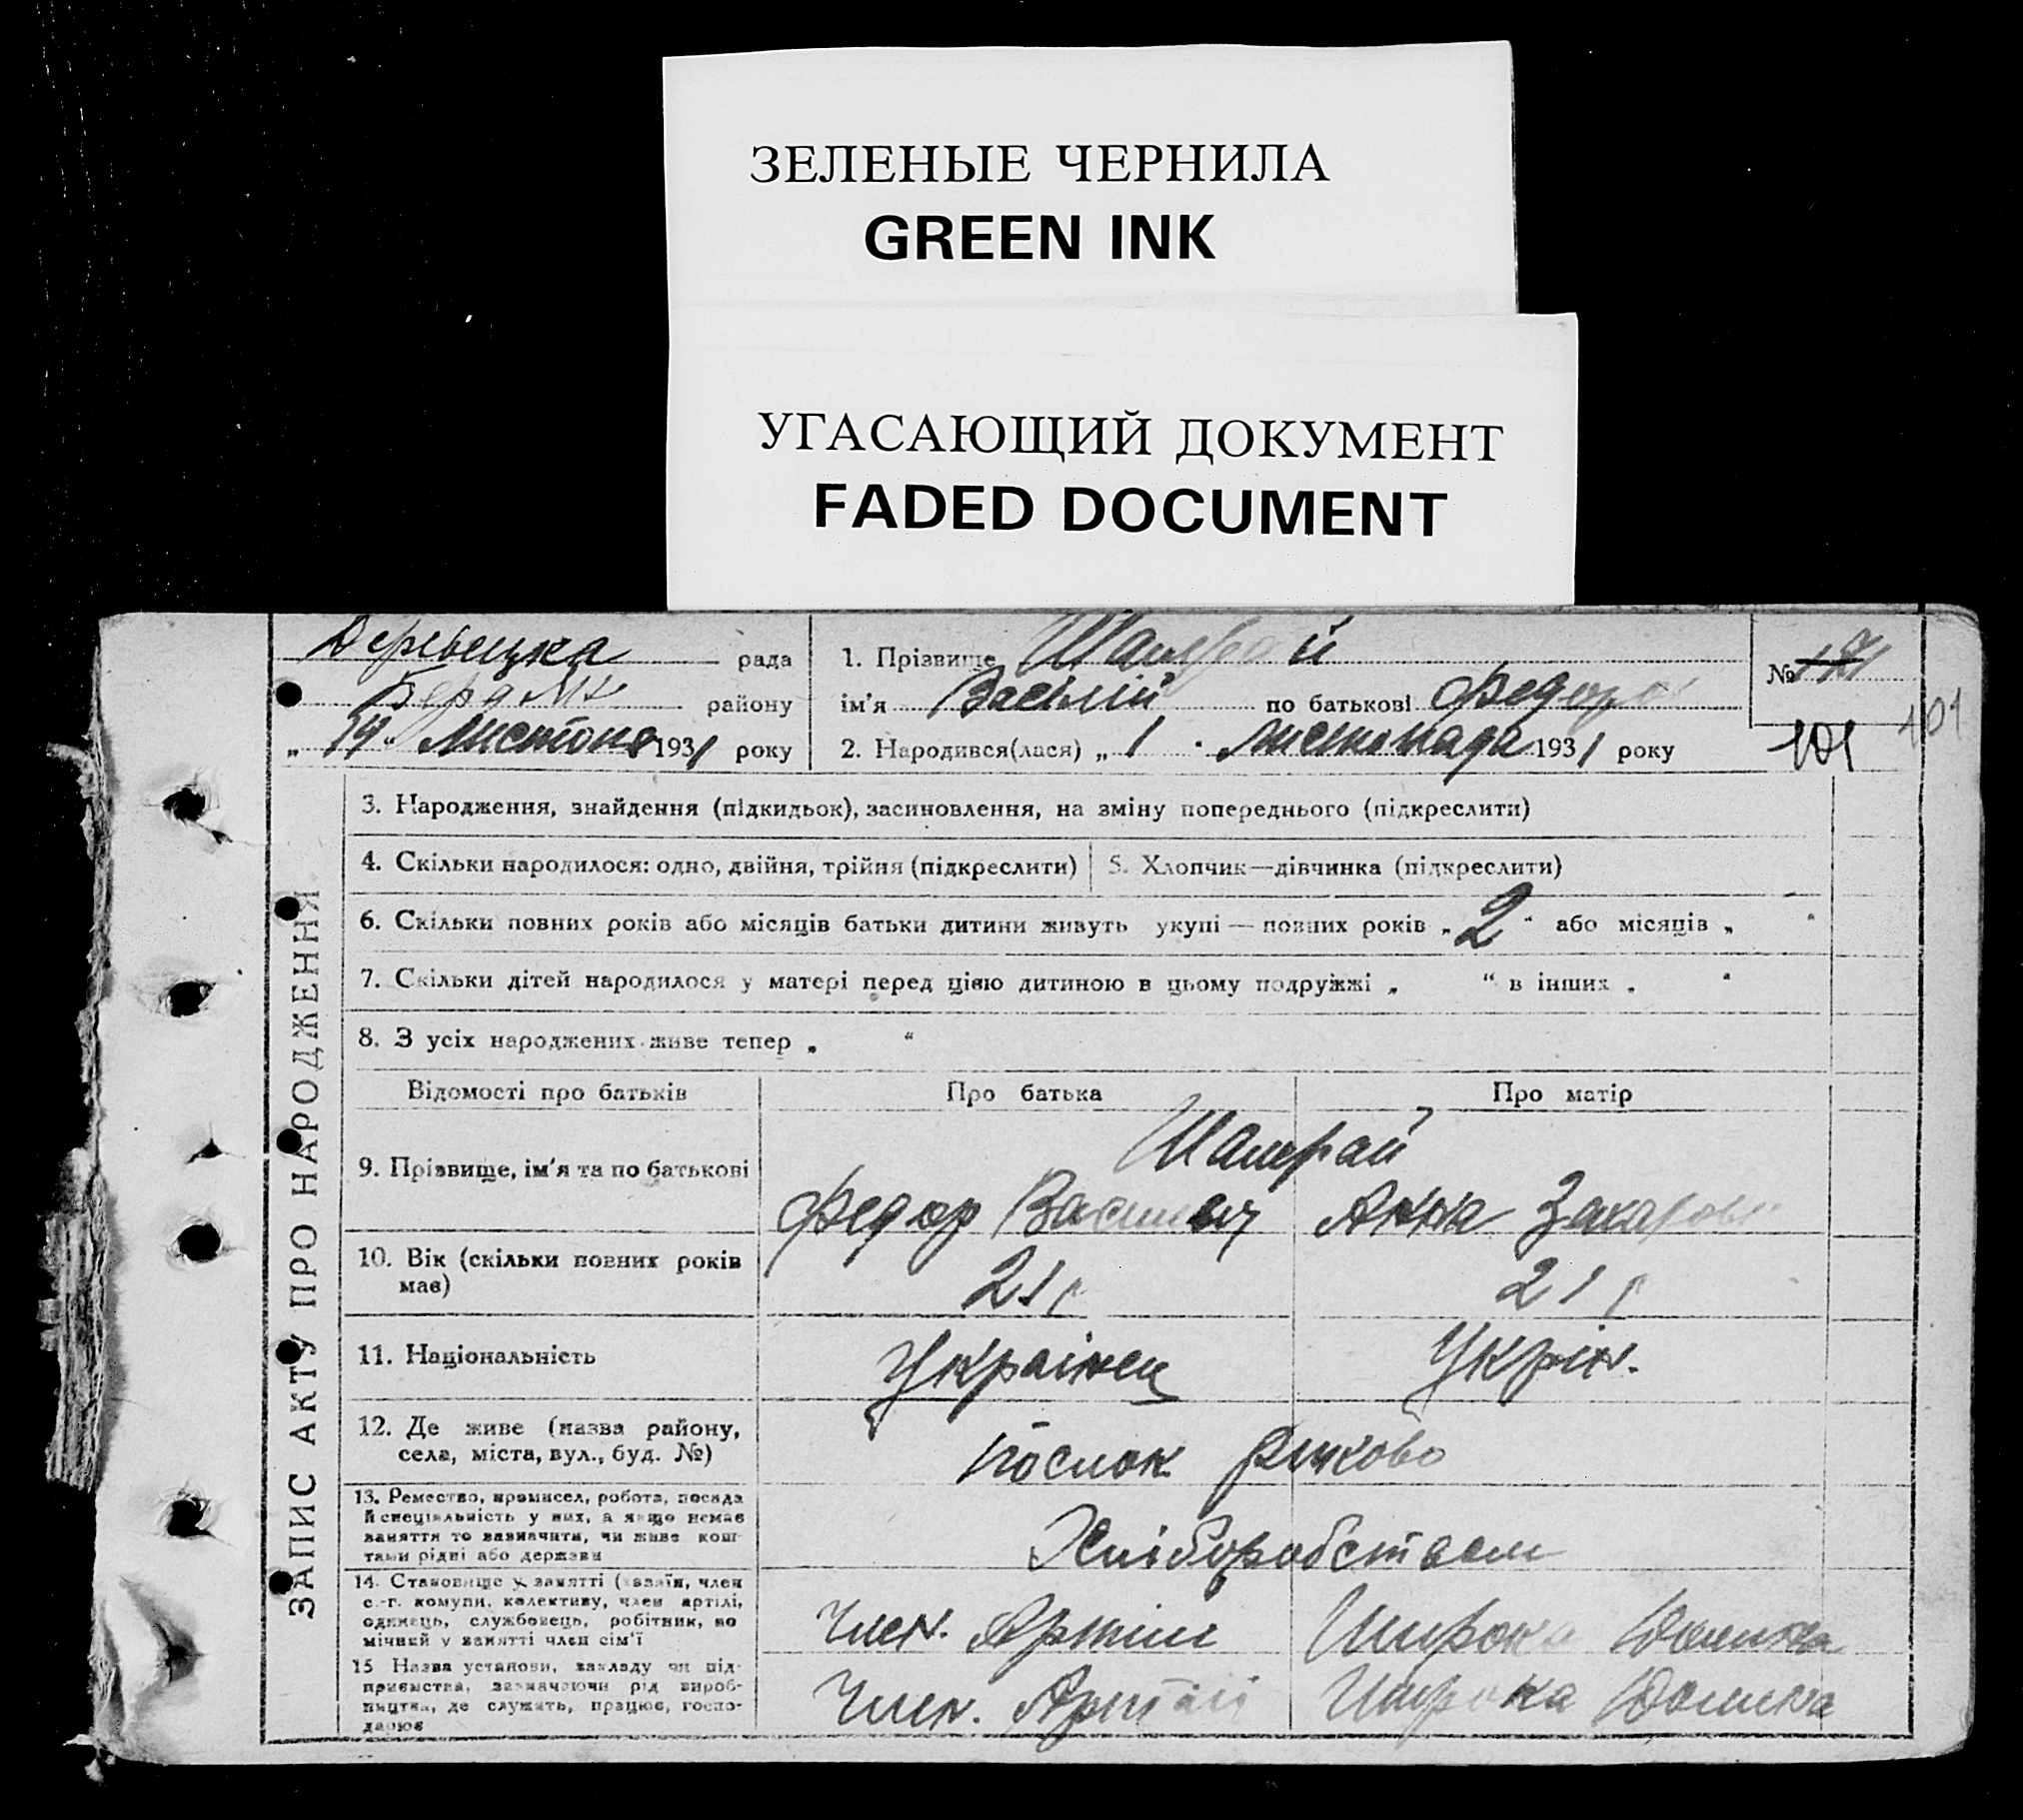 ЗЕЛЕНЫЕ ЧЕРНИЛА
GREEN INK
УГАСАЮЩИЙ ДОКУМЕНТ
FADED DOCUMENT
рада
району
„ 19 “ 1931 року
1. Прізвище Шамрай
ім'я Васілій по батькові Федоро
2. Народився(лася) „ 1 “ Листопада 1931 року
№ 171
101
101
ЗАПИС АКТУ ПРО НАРОДЖЕННЯ
3. Народження, знайдення (підкидьок), засиновлення, на зміну попереднього (підкреслити)
4. Скільки народилося: одно, двійня, трійня (підкреслити)
5. Хлопчик—дівчинка (підкреслити)
6. Скільки повних років або місяців батьки дитини живуть укупі — повних років „ 2 “ або місяців „ “
7. Скільки дітей народилося у матері перед цією дитиною в цьому подружжі „ “ в інших „ “
8. З усіх народжених живе тепер „ “
Відомості про батьків
Про батька
Про матір
9. Прізвище, ім'я та по батькові
Шамрай
Федор
Анна
10. Вік (скільки повних років має)
21 р
21 р
11. Національність
Українец
Укрін.
12. Де живе (назва району, села, міста, вул., буд. №)
13. Ремество, промисел, робота, посада й спеціяльність у них, а якщо немає заняття то зазначити, чи живе коштами рідні або держави
Хліборобством
14. Становище у занятті (хазяїн, член с.-г. комуни, колективу, член артілі, одинець, службовець, робітник, помічний у занятті член сім'ї
Член. Артілі
Широка Долина
15 Назва установи, закладу чи підприємства, зазначаючи рід виробництва, де служить, працює, господарює
Член. Артілі
Широка Долина